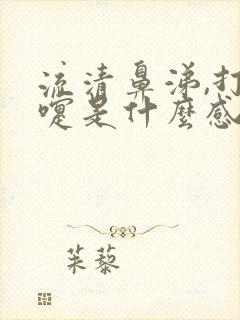 流清鼻涕,打
嚏是什麼感
茱藜